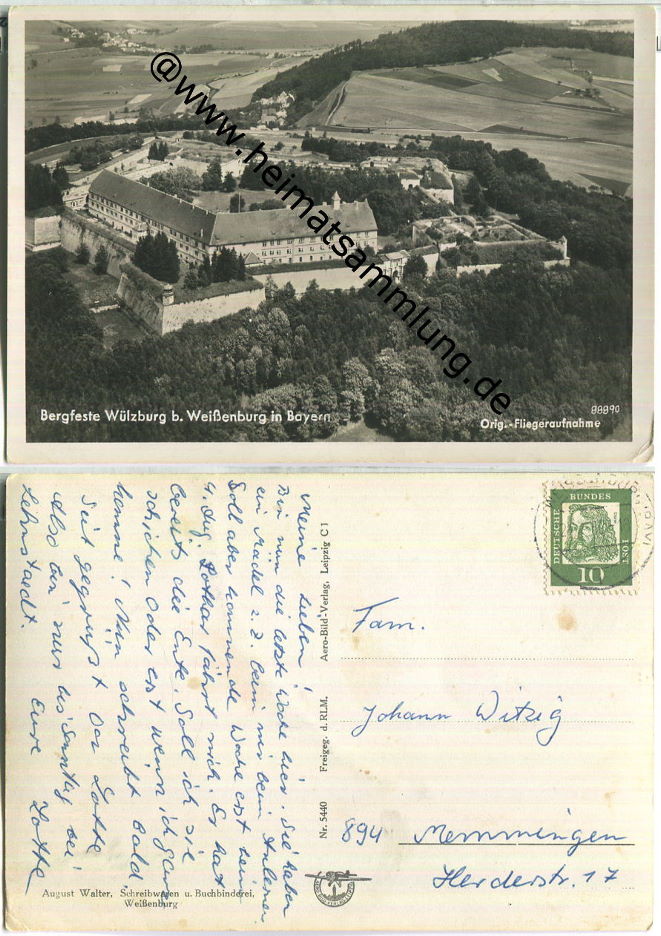 @www.heimatsammlung.de
Bergfeste Wülzburg b. Weißenburg in Bayern
88890
Orig.-Fliegeraufnahme
Meine Lieben!
Bin nun die letzte Woche hier. Sie haben
ein Mädel z. Z. beim
Soll aber kommende Woche erst
4. Aug. Lothar fährt mich. Er hat
bereits die Ente. Soll ich sie
schicken oder erst wenn ich ganz
komme! Nun schreibt bald
Seid gegrüßt von Lotte
Also bin nur bis Samstag bei
Lehnstaedt.
Eure Lotte
August Walter, Schreibwaren u. Buchbinderei,
Weißenburg
Nr. 5440 Freigeg. d. RLM. Aero-Bild-Verlag, Leipzig C 1
DEUTSCHE BUNDESPOST
10
Fam.
Johann Witzig
894 Memmingen
Herderstr. 17